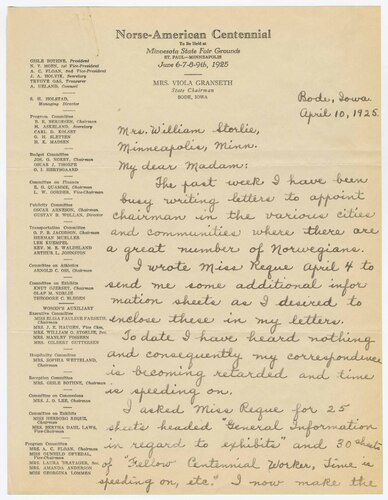 Norse-American Centennial
To Be Held at
Minnesota State Fair Grounds
ST. PAUL—MINNEAPOLIS
June 6-7-8-9th, 1925
MRS. VIOLA GRANSETH
State Chairman
BODE, IOWA
GISLE BOTHNE, President
N. T. MOEN, 1st Vice-President
A. C. FLOAN, 2nd Vice-President
J. A. HOLVIK, Secretary
TRYGVE OAS, Treasurer
A. UELAND, Counsel
S. H. HOLSTAD,
Managing Director
Program Committee
B. E. BERGESEN, Chairman
M. ASKELAND, Secretary
CARL D. KOLSET
O. H. SLETTEN
H. K. MADSEN
Budget Committee
JOS. G. NORBY, Chairman
OSCAR J. THORPE
O. I. HERTSGAARD
Committee on Finance
E. G. QUAMME, Chairman
L. W. Vice-Chairman
Publicity Committee
OSCAR ARNESON, Chairman
GUSTAV B. WOLLAN, Director
Transportation Committee
O. P. B. JACOBSON, Chairman
HERMAN MUELLER
LEE KUEMPEL
REV. M. E. WALDELAND
ARTHUR L. JOHNSTON
Committee on Athletics
ARNOLD C. OSS, Chairman
Committee on Exhibits
KNUT GJERSET, Chairman
OLAF M. NORLIE
THEODORE C. BLEGEN
WOMEN'S AUXILIARY
Executive Committee
MISS ELISA PAULINE FARSETH,
Chairman
MRS. J. E. HAUGEN, Vice Chm.
MRS. WILLIAM O. STORLIE, Sec.
MRS. MANLEY FOSSEEN
MRS. GILBERT GUTTERSEN
Hospitality Committee
MRS. SOPHIA WETTELAND,
Chairman
Reception Committee
MRS. GISLE BOTHNE, Chairman
Committee on Concessions
MRS. J. O. LEE, Chairman
Committee on Exhibits
MISS HERBORG REQUE,
Chairman
MRS. BERTHA DAHL LAWS,
Vice-Chairman
Program Committee
MRS. A. C. FLOAN, Chairman
MISS GUNFELD OPTEDAL,
Vice-Chairman
MRS. LAURA BRATAGER, Sec.
MRS. AMANDA ANDERSON
MISS GEORGINA LOMMEN
Bode, Iowa.
April 10, 1925.
Mrs. William Storlie,
Minneapolis, Minn.
My dear Madam:
The past week I have been
busy writing letters to appoint
chairman in the various cities
and communities where there are
a great number of Norwegians.
I wrote Miss Reque April 4 to
send me some additional infor
mation sheets as I desired to
enclose these in my letters.
To date I have heard nothing
and consequently my correspondence
is becoming retarded and time
is speeding on.
I asked Miss Reque for 25
sheets headed "General Information
in regard to exhibits" and 30 sheets
of "Fellow Centennial Worker, Time is
speeding on, etc." I now make the